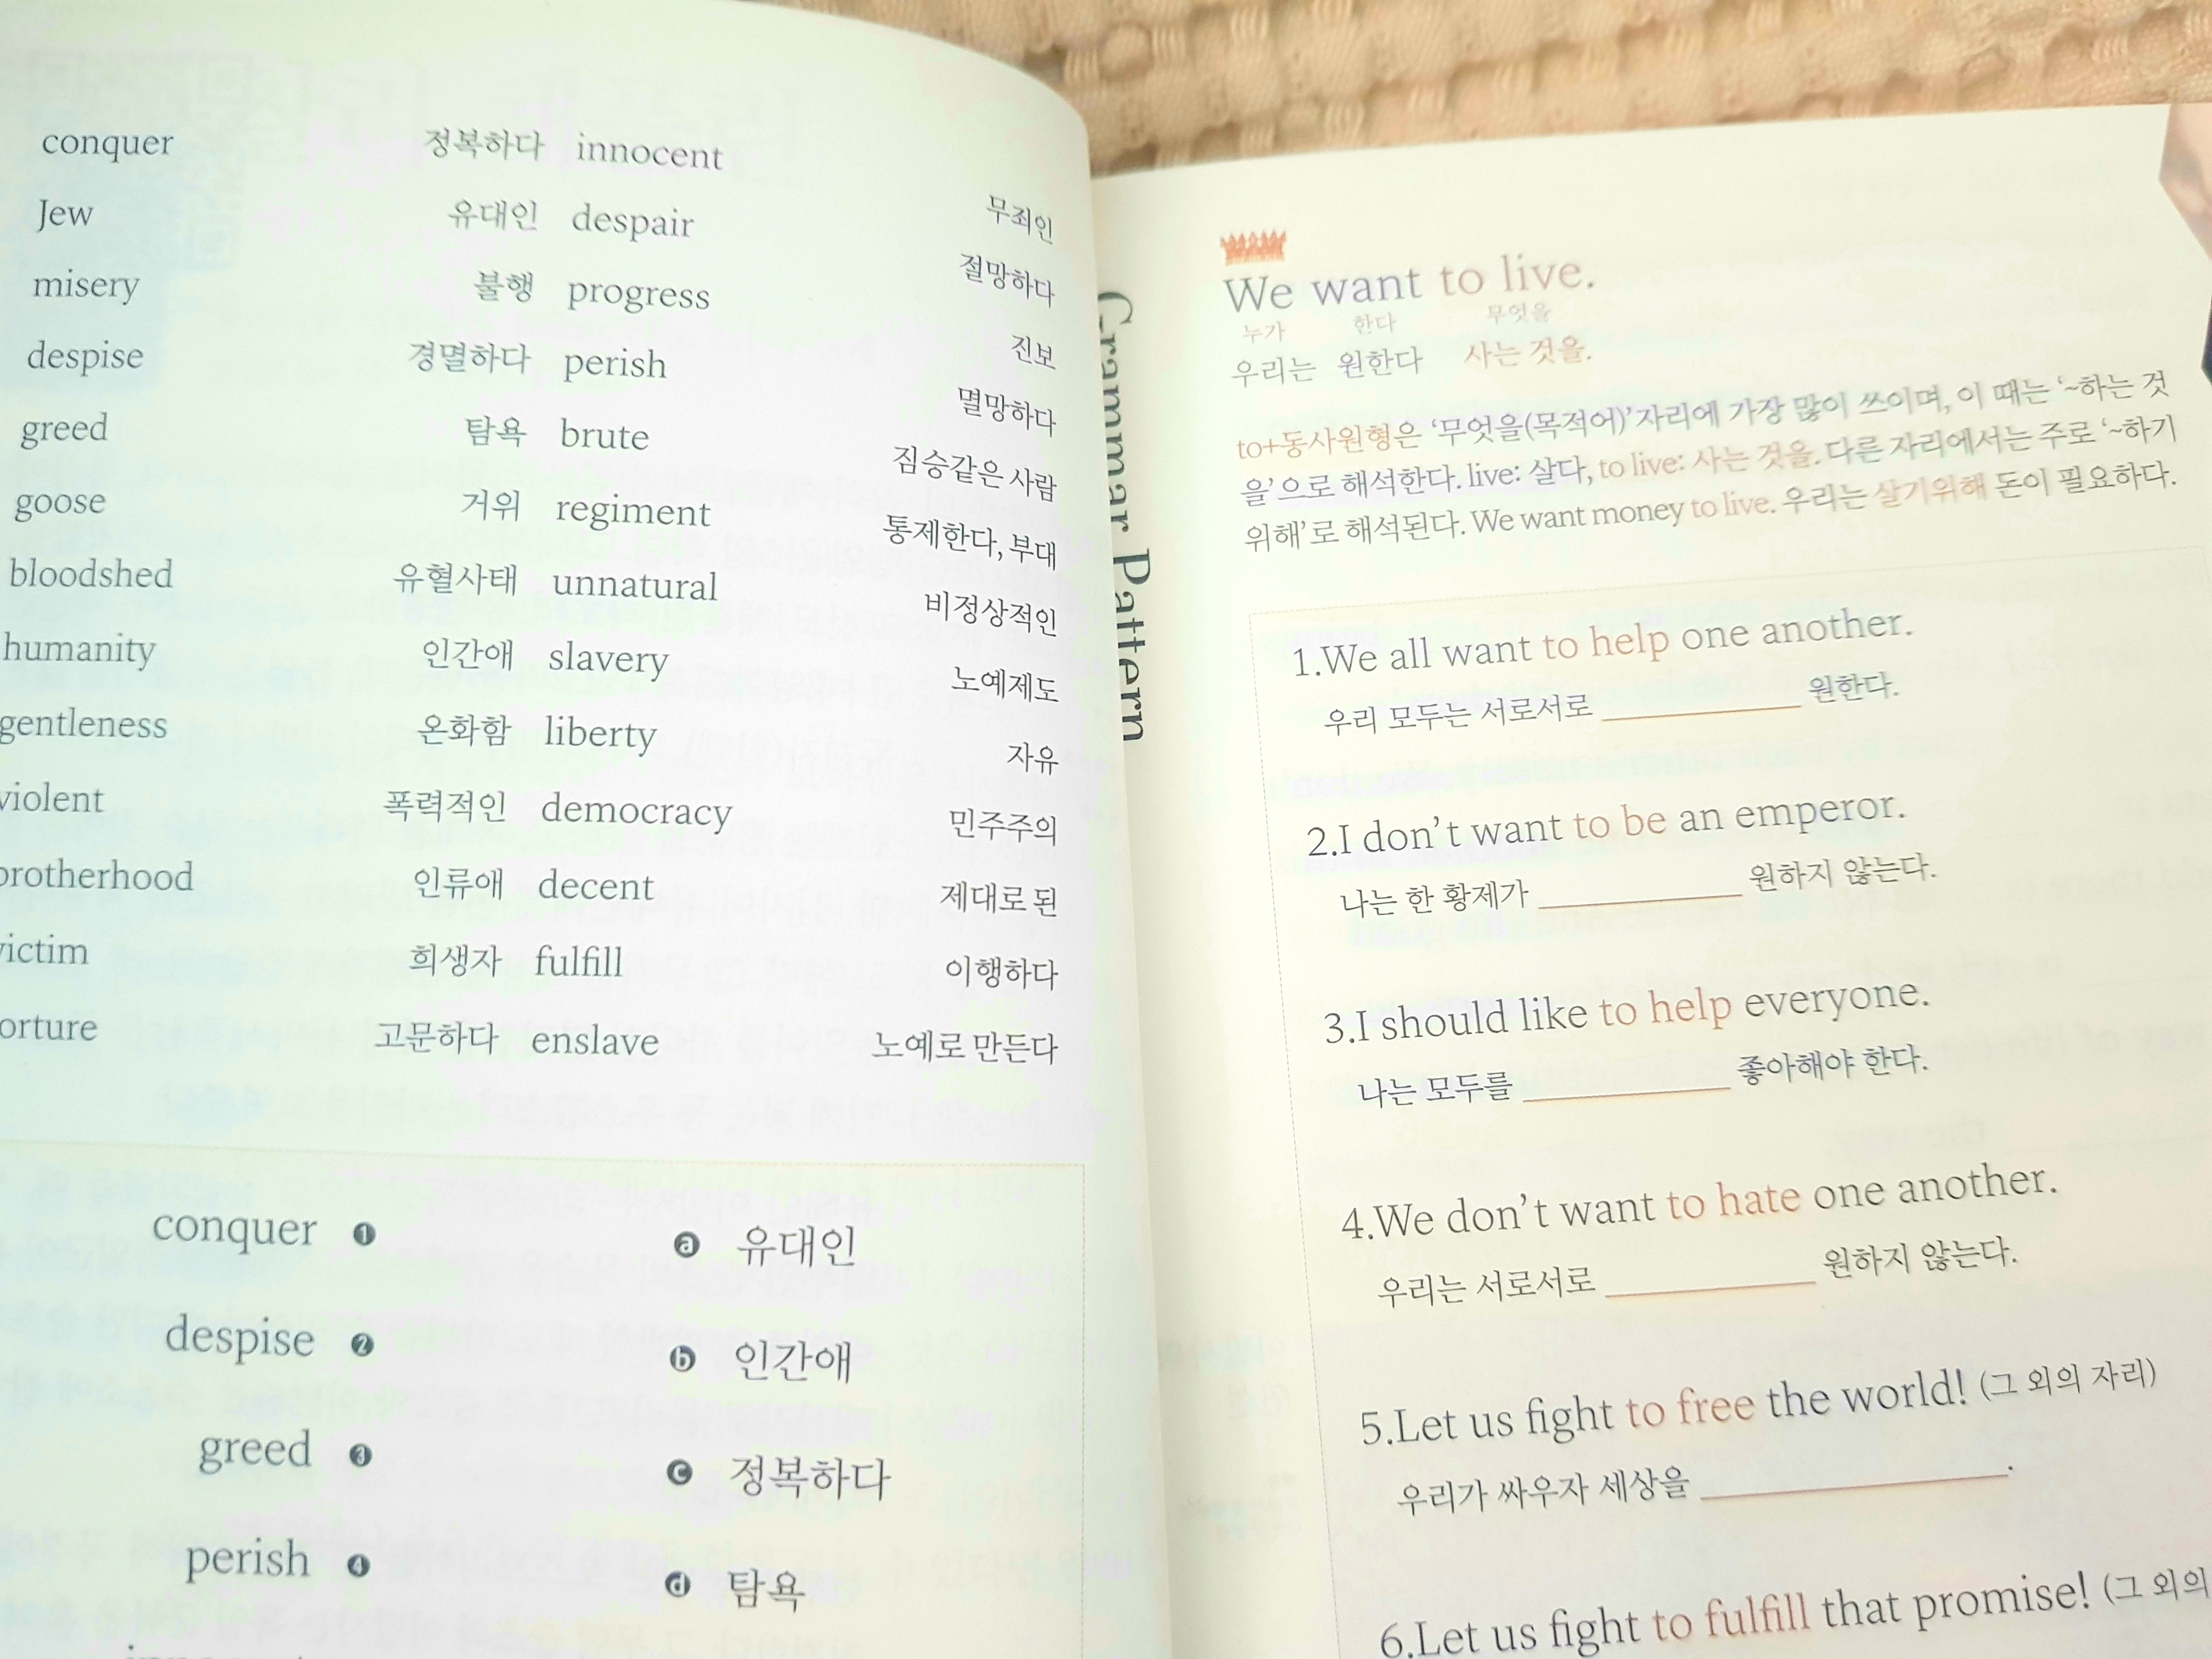 conquer 정복하다 innocent 무죄인
Jew 유대인 despair 절망하다
misery 불행 progress 진보
despise 경멸하다 perish 멸망하다
greed 탐욕 brute 짐승같은 사람
goose 거위 regiment 통제한다, 부대
bloodshed 유혈사태 unnatural 비정상적인
humanity 인간애 slavery 노예제도
gentleness 온화함 liberty 자유
violent 폭력적인 democracy 민주주의
brotherhood 인류애 decent 제대로 된
victim 희생자 fulfill 이행하다
orture 고문하다 enslave 노예로 만든다
conquer ❶ ⓐ 유대인
despise ❷ ⓑ 인간애
greed ❸ ⓒ 정복하다
perish ❹ ⓓ 탐욕
Grammar Pattern
We want to live.
누가 한다 무엇을
우리는 원한다 사는 것을.
to+동사원형은 ‘무엇을(목적어)’자리에 가장 많이 쓰이며, 이 때는 ‘~하는 것
을’으로 해석한다. live: 살다, to live: 사는 것을. 다른 자리에서는 주로 ‘~하기
위해’로 해석된다. We want money to live. 우리는 살기위해 돈이 필요하다.
1.We all want to help one another.
우리 모두는 서로서로 ________ 원한다.
2.I don’t want to be an emperor.
나는 한 황제가 ________ 원하지 않는다.
3.I should like to help everyone.
나는 모두를 ________ 좋아해야 한다.
4.We don’t want to hate one another.
우리는 서로서로 ________ 원하지 않는다.
5.Let us fight to free the world! (그 외의 자리)
우리가 싸우자 세상을 ________.
6.Let us fight to fulfill that promise! (그 외의